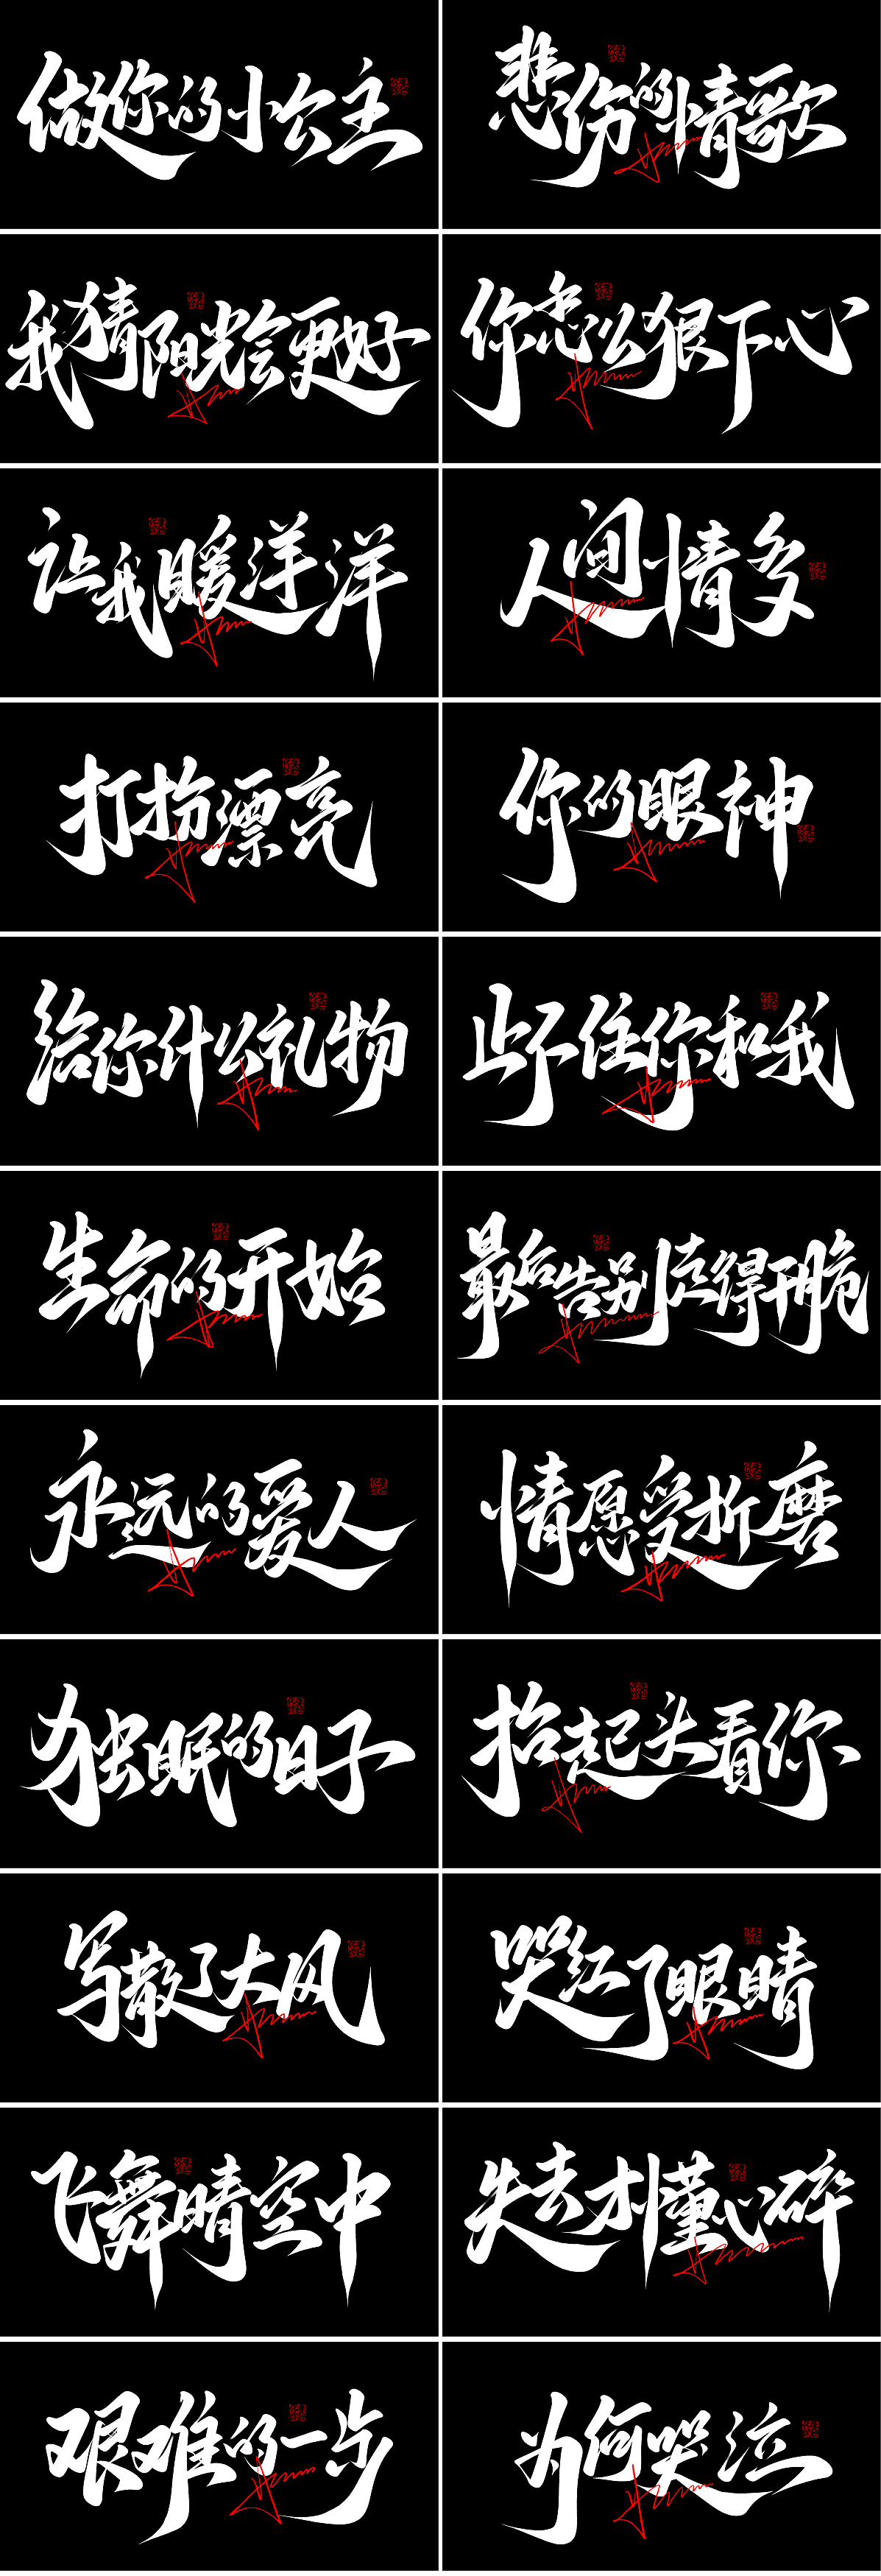 做你的小公主
悲伤的情歌
我猜阳光会更好
你怎么狠下心
让我暖洋洋
人间情多
打扮漂亮
你的眼神
给你什么礼物
止不住你和我
生命的开始
最后告别变得干脆
永远的爱人
情愿受折磨
独眠的日子
抬起头看你
写散了大风
哭红了眼睛
飞舞晴空中
失去才懂心碎
艰难的一步
为何哭泣